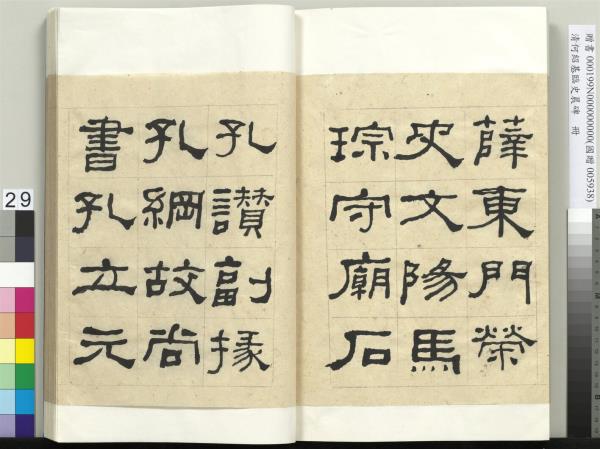 薛東門榮
史文陽馬
琮守廟石
孔讚副掾
孔綱故尚
書孔立元
贈書 000199N000000000(國贈 005938)
清何紹基臨史晨碑 冊
29